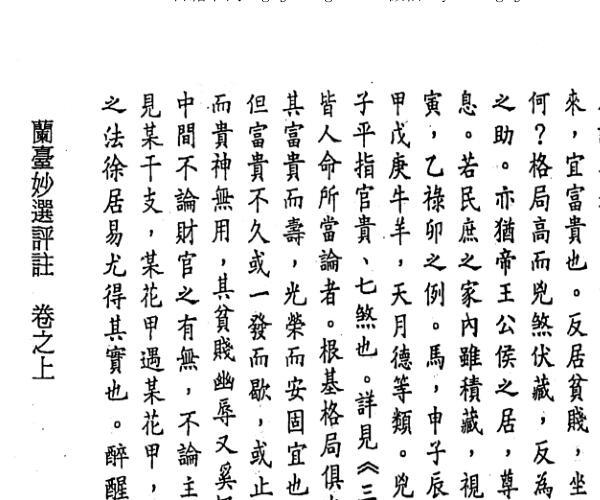 來，宜富貴也。反居貧賤，坐
何？格局高而兇煞伏藏，反為
之助。亦猶帝王公侯之居，尊
息。若民庶之家內雖積藏，視
寅，乙祿卯之例。馬，申子辰
甲戊庚牛羊，天月德等類。兇
子平指官貴、七煞也。詳見《三
皆人命所當論者。根基格局俱
其富貴而壽，光榮而安固宜也
但富貴不久或一發而歇，或止
而貴神無用，其貧賤幽辱又奚
中間不論財官之有無，不論主
見某干支，某花甲遇某花甲，
之法徐居易尤得其實也。醉醒
蘭臺妙選評註 卷之上